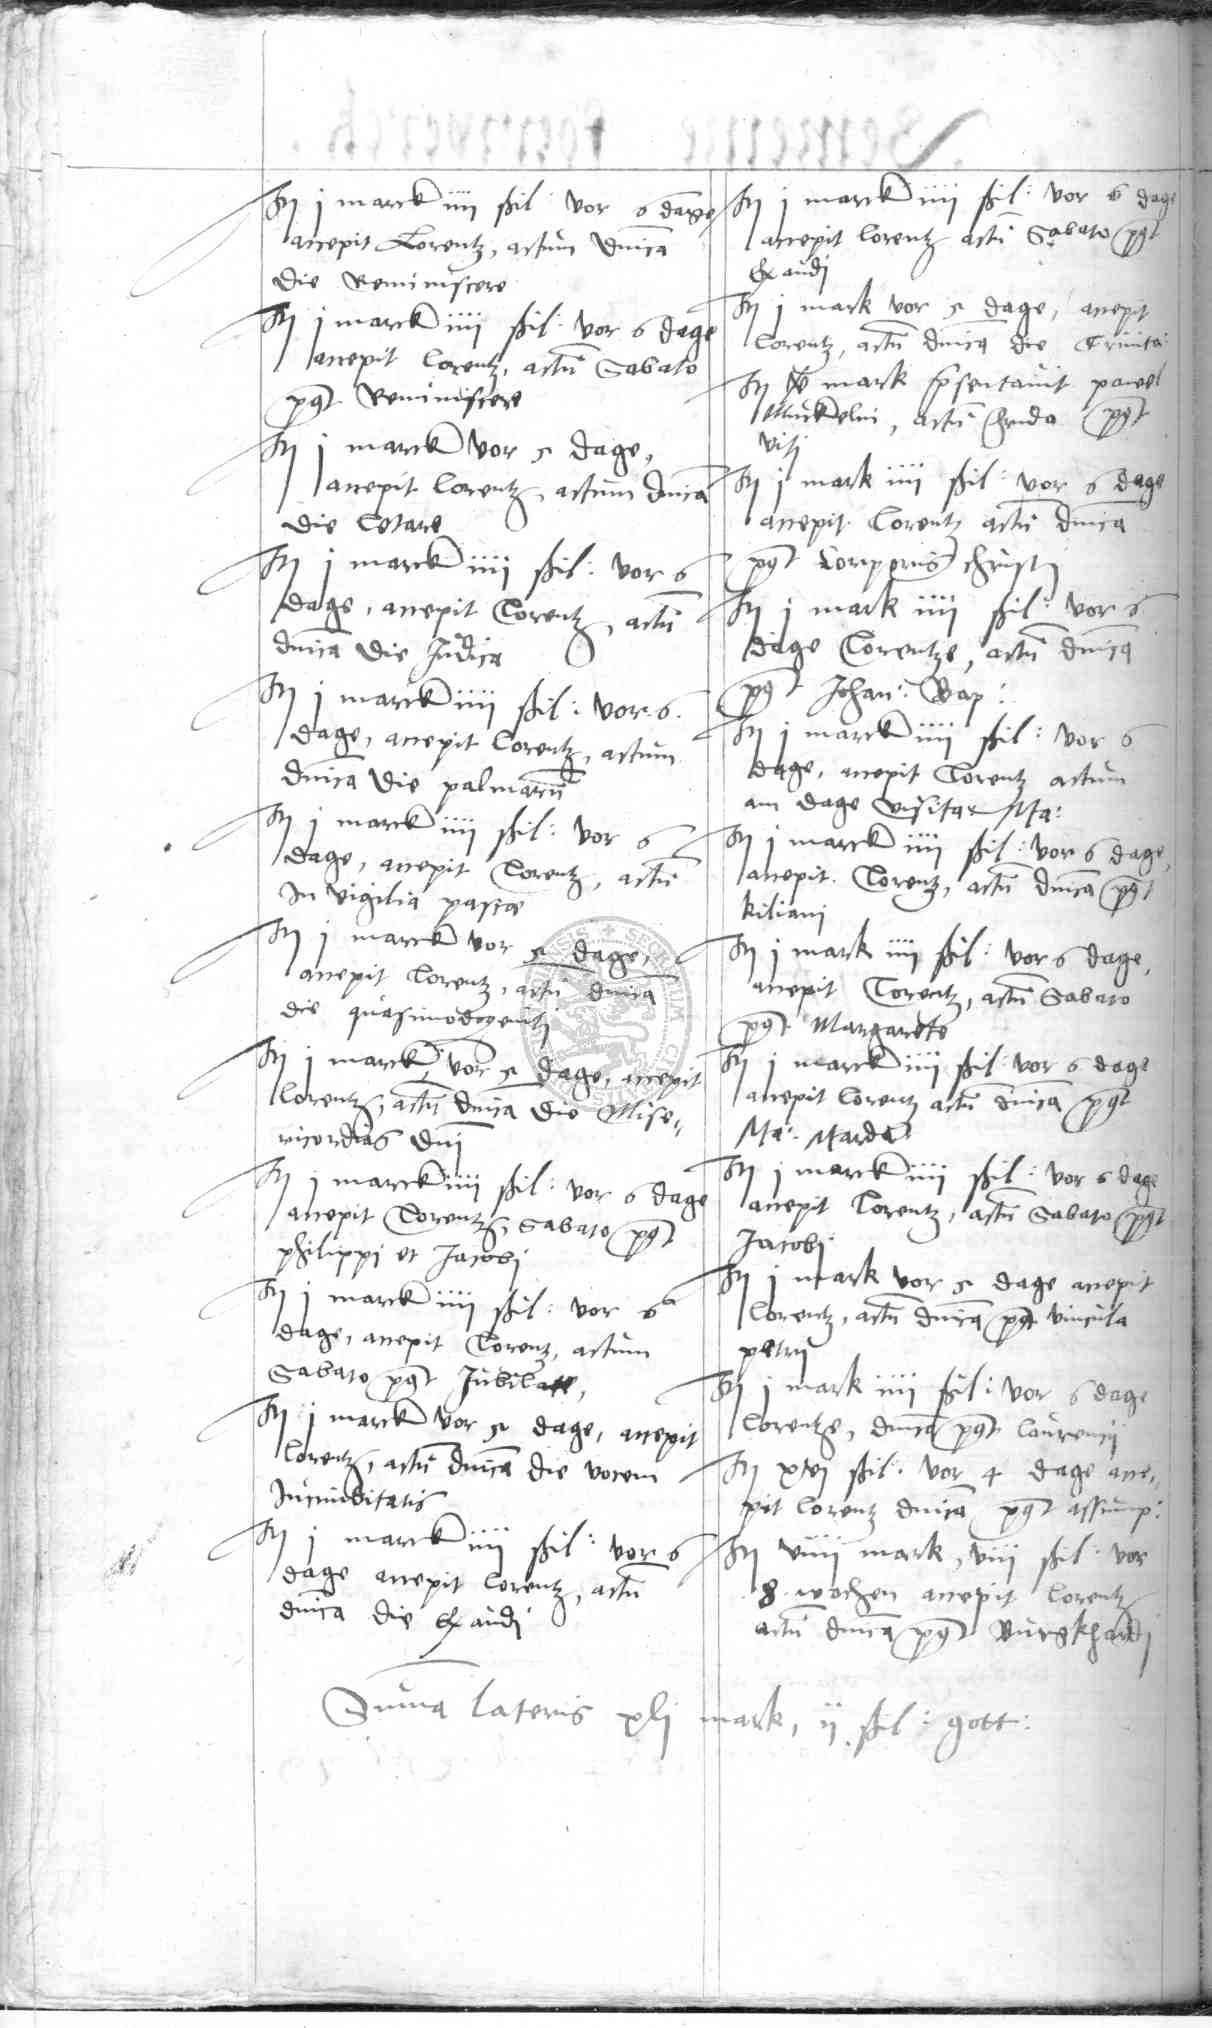 Itm j marck iiii ßil: vor 6 dage
accepit Lorentz, actum dnica
die Reminiscere
Itm j marck iiii ßil: vor 6 dage
accepit Lorentz, actu Sabato
post Reminiscere
Itm j marck vor 5 dage,
accepit Lorentz, actum dnica
die Letare
Itm j marck iiii ßil: vor 6
dage, accepit Lorentz, actu
dnica die Judica
Itm j marck iiii ßil: vor 6
dage, accepit Lorentz, actum
dnica die palmaru
Itm j marck iiii ßil: vor 6
dage, accepit Lorentz, actu
In vigilia pasce
Itm j marck vor 5 dage,
accepit Lorentz, actu dnica
die quasimodogeniti
Itm j marck, vor 5 dage, accepit
Lorentz, actu dnica die Mise„
ricordias dni
Itm j marck iiii ßil: vor 6 dage
accepit Lorentz, Sabato post
philippi et Jacobi
Itm j marck iiii ßil: vor 6
dage, accepit Lorentz, actum
Sabato post Jubilate,
Itm j marck vor 5 dage, accepit
Lorentz, actu dnica die vocem
Jucunditatis
Itm j marck iiii ßil: vor 6
dage accepit Lorentz, actu
dnica die Exaudi
Itm j marck iiii ßil: vor 6 dage
accepit Lorentz actu Sabato post
Exaudi
Itm j mark vor 5 dage, accepit
Lorentz, actu dnica die Trinita:
Itm mark psentauit pawel
actu post
viti
Itm j mark iiii ßil: vor 6 dage
accepit Lorentz actu dnica
post Corporis christi
Itm j mark iiii ßil: vor 6
dage Lorentze, actu dnica
post Johan: Bap:
Itm j marck iiii ßil: vor 6
dage, accepit Lorentz actum
am dage visitar Ma:
Itm j marck iiii ßil: vor 6 dage,
accepit Lorentz, actu dnica post
kiliani
Itm j mark iiii ßil: vor 6 dage,
accepit Lorentz, actu Sabato
post Margarete
Itm j marck iiii ßil: vor 6 dage
accepit Lorentz actu dnica post
Ma: Magda:
Itm j marck iiii ßil: vor 6 dage
accepit Lorentz, actu Sabato post
Jacobi
Itm j mark vor 5 dage accepit
Lorentz, actu dnica post vincula
petri
Itm j mark iiii ßil: vor 6 dage
Lorentze, dnica post Laurencij
Itm xvj ßil: vor 4 dage acce„
pit Lorentz dnica post assump:
Itm viiii mark, viii ßil: vor
8 wochen accepit Lorentz
actu dnica post Burgkhardi
Suma Lateris xlj mark, ij ßil: gott: